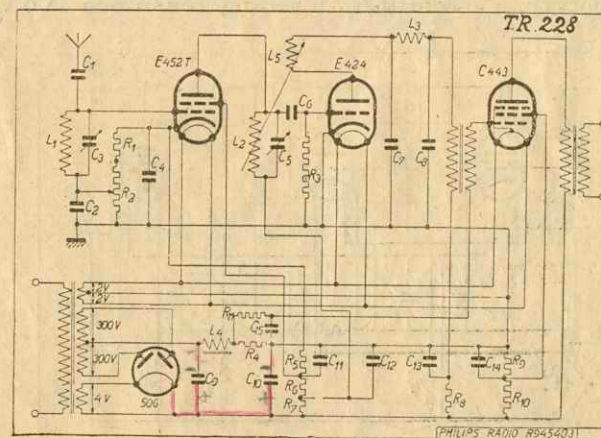 TR.228
L3
E452T
L5
E424
C443
C1
C6
L1
C3
R1
C4
L2
C5
R3
C7
C8
R2
C2
2V
2V
300V
300V
4V
506
L4
R4
C9
C10
R5
R6
R7
C11
C12
C13
R8
C14
R9
R10
PHILIPS RADIO R945403